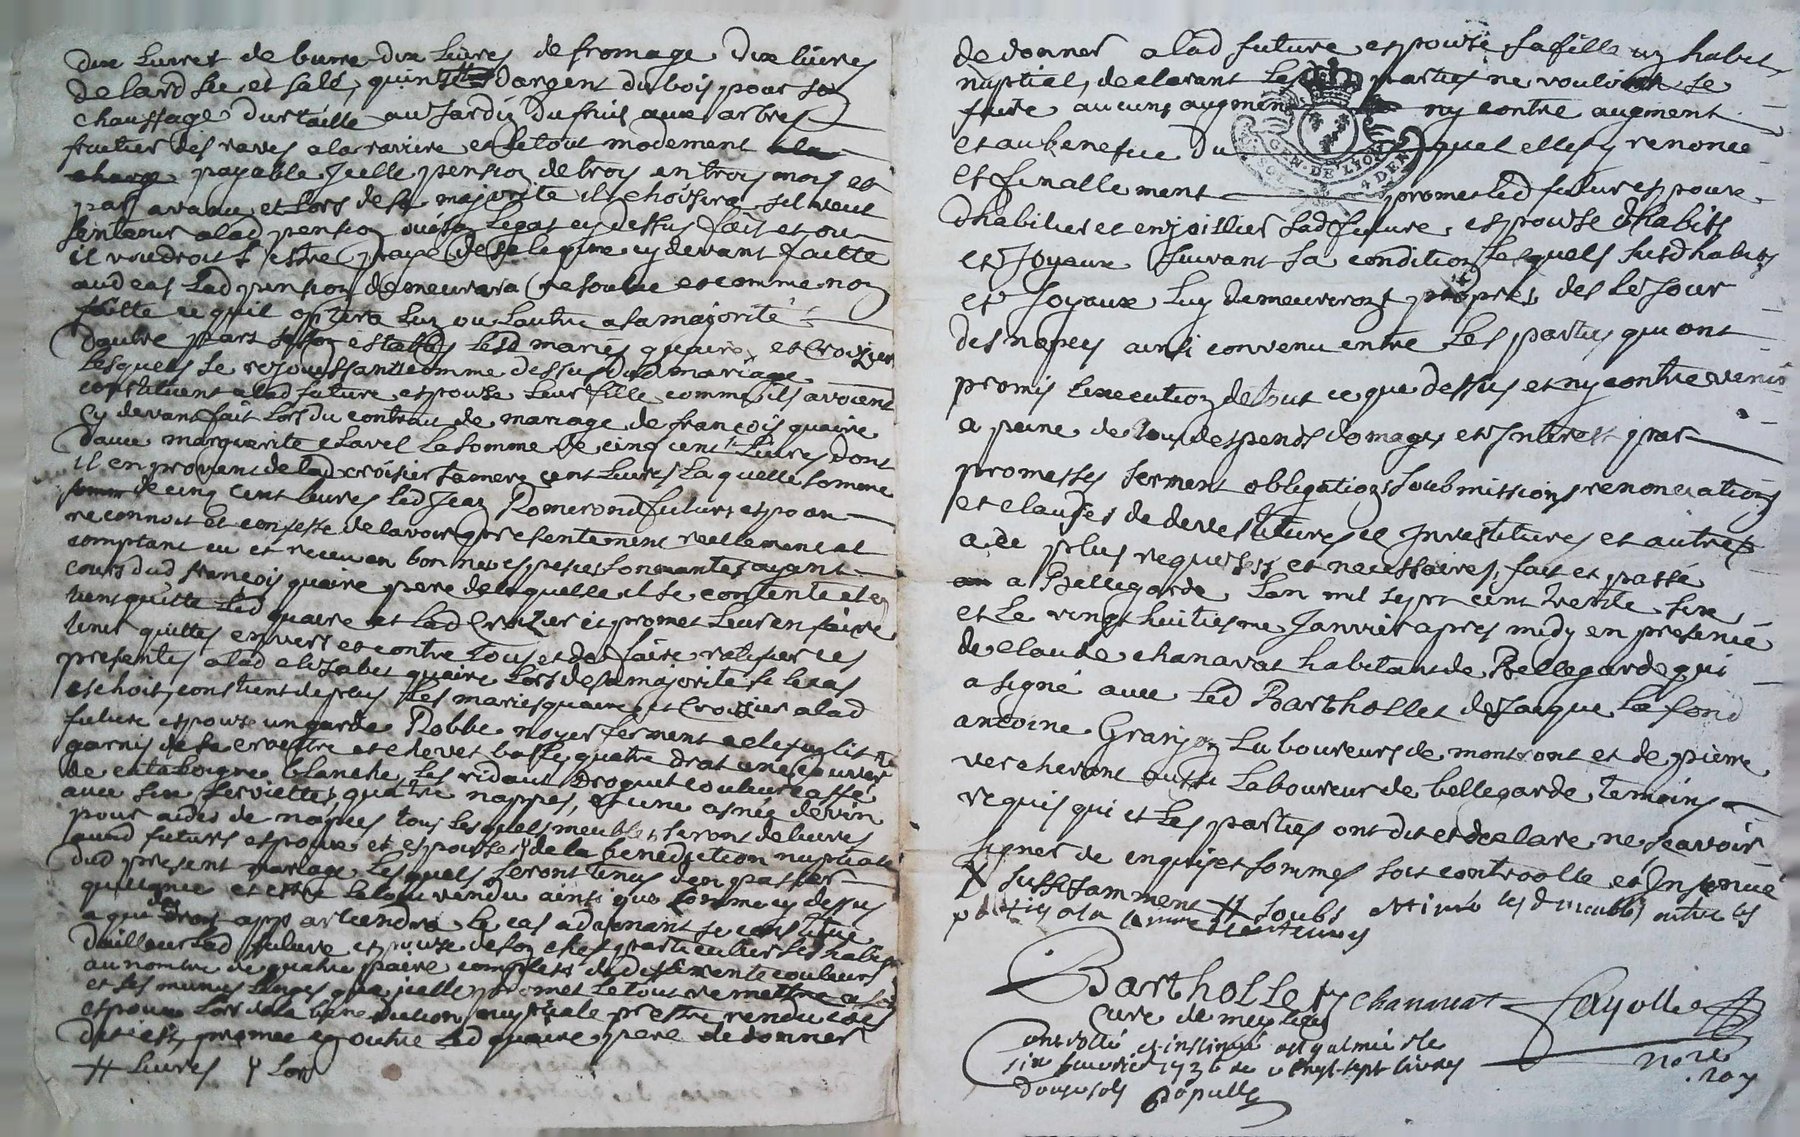 dix Livres de burre dix Livres de fromage dix livres
de lard sec et salé, quinze # dargent du bois pour son
chauffage durtaille au Jardin du fruit aux arbres
fruitier des raves a la raviere et le tout modement
payable Icelle pension de trois en trois mois et
par avance et Lors de sa majorité il choisira sil veut
sen tenir a lad pension ou es Legat cy dessus fait et ou
il voudroit estre payé de sa legitime cy devant faitte
aud cas Lad pension demeurera resolue et comme non
faitte ce quil optera Lun ou Lautre a sa majorité
dautre part estably Lesd mariés quaire et Croisier
Lesquels se rejouissant comme dessus dud mariage
constituent a lad future espouse Leur fille comme ils avoient
cy devant fait Lors du contrat de mariage de françois quaire
davec marguerite clavel La somme de cinq cent Livres dont
il en provient de lad croisier sa mere cent Livres Laquelle somme
de cinq cent livres Led Jean Romerond futur espoux
reconnoit et confesse de lavoir presentement reellement et
comptant eu et receu en bonnes especes sonnantes ayant
cours dud françois quaire pere de laquelle il se contente et en
tient quitte Led quaire et Lad Croizier et promet Leur en faire
tenir quittes envers et contre tous et de faire ratifier ces
presentes a lad elizabet quaire Lors de sa majorité si le cas
eschoit, constituent de plus Les mariés quaire et Croisier a lad
future espouse un garde Robbe noyer fermant a clef un lit
garni de sa et chevet balle, quatre drat une couverte
de cataloigne blanche, Les ridaut Droguet couleur caffé
avec six serviettes, quatre nappes, et une asnée de vin
pour aides de nopces tous Lesquels meubles seront delivrés
aud futurs espoux et espouse Y de la benediction nuptiale
dud present mariage Lesquels seront tenus den passer
quittance et estre Le tout rendu ainsi que somme cy dessus
a qui de droit appartiendra le cas advenant se constitue
dailleurs Lad future espouse de son chef particulier ses habits
au nombre de quatre paire complets de differente couleurs
et ses menus Linges que icelle promet Le tout remettre a son
espoux Lors de la benediction nuptiale prestre rendu comme
dit est, promet en outre Led quaire pere de donner
# Livres Y Lors
de donner a lad future espouse sa fille un habit
nuptial, declarant Les parties ne vouloir se
faire aucuns augment ny contre augment
et au benefice du quel elles y renonce
et finallement promet led futur espoux
dhabiller et enjoailler Lad future, espouse dhabits
et Joyaux suivant sa condition Lesquels susd habits
et Joyaux Luy demeureront propres des le Jour
des nopces ainsi convenu entre Les parties qui ont
promis Lexecution de tout ce que dessus et ny contrevenir
a peine de tous despends domages et Interest par
promesses serment obligations soubmissions renonciations
et clauses de devestitures et Investitures et autres
a ce plus requises et necessaires, fait et passé
a Bellegarde Lan mil sept cent trente six
et Le vingt huitiesme Janvier apres midy en presence
de claude chanavat habitant de Bellegarde qui
a signé avec Led Barthollet de Jacque La fond
antoine Granjon Laboureurs de montront et de pierre
vercherant aussi Laboureur de bellegarde temoins
requis qui et Les parties ont dit et declare ne scavoir
signer de enquis et sommés soit controolle et Insinué
X suffisamment # soubs les
GEN. DE LYON
4 DEN
Barthollet chanavat Fayolle
Curé de meylieu
Controllé et insinué a St galmier le
six fevrier 1736 reçu vingt sept livres
douze sols Populle
Nore
roy